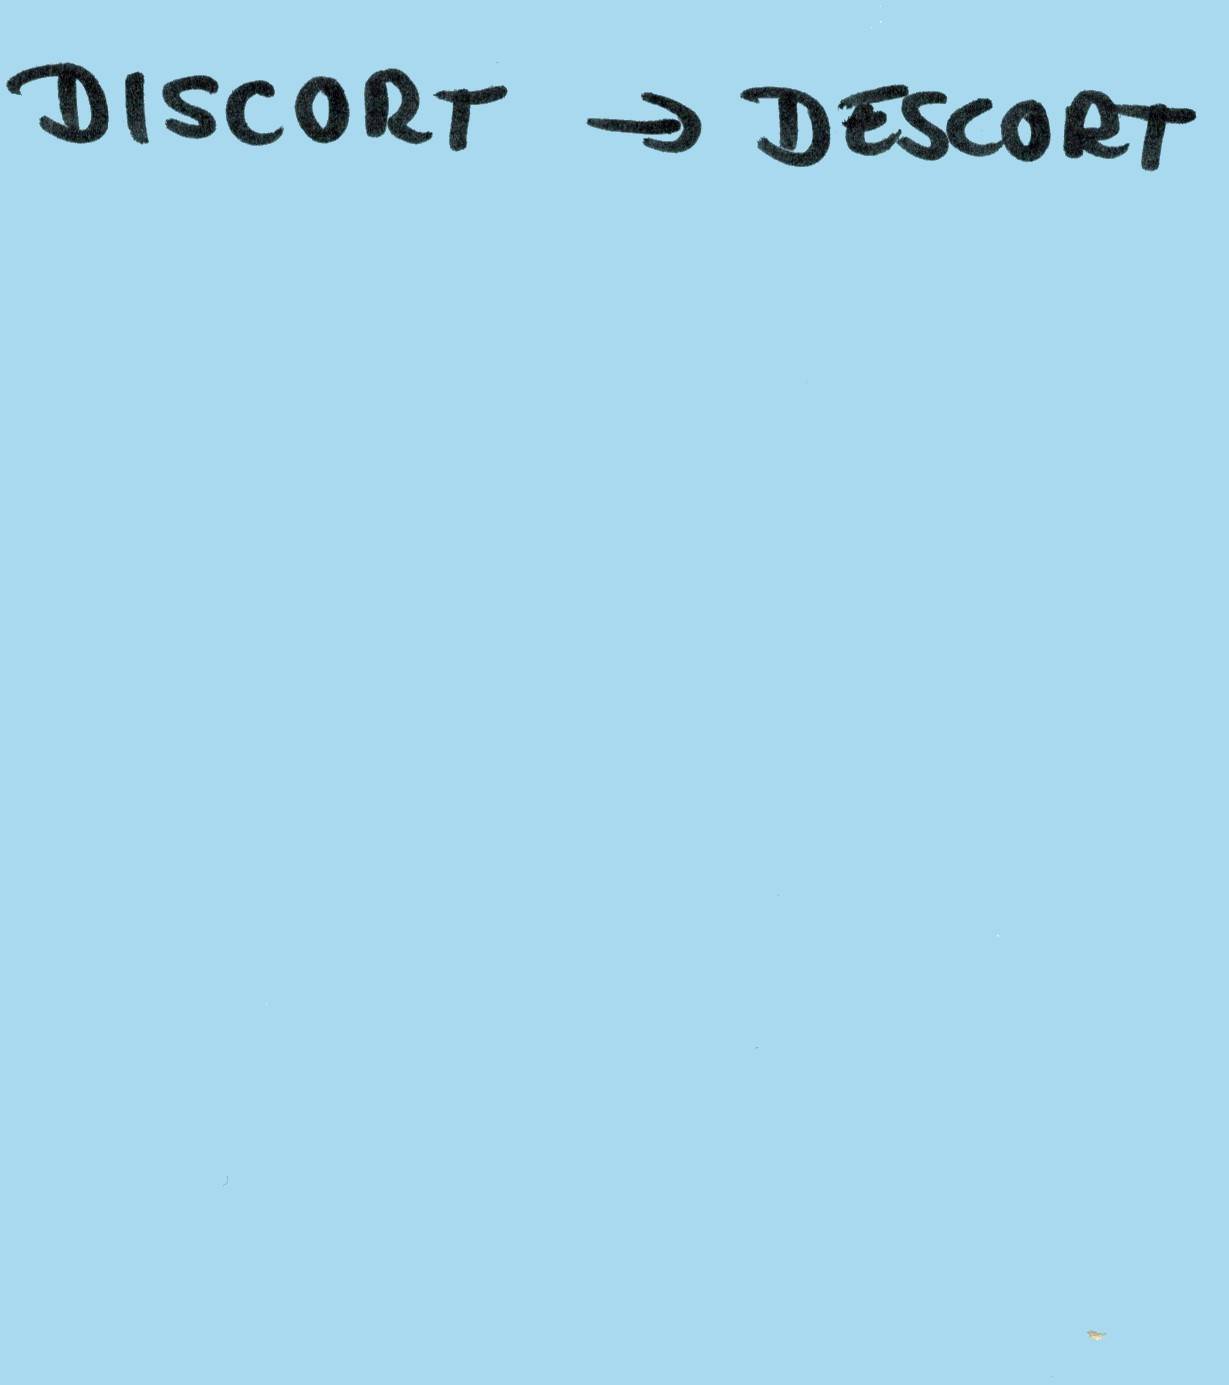 DISCORT → DESCORT